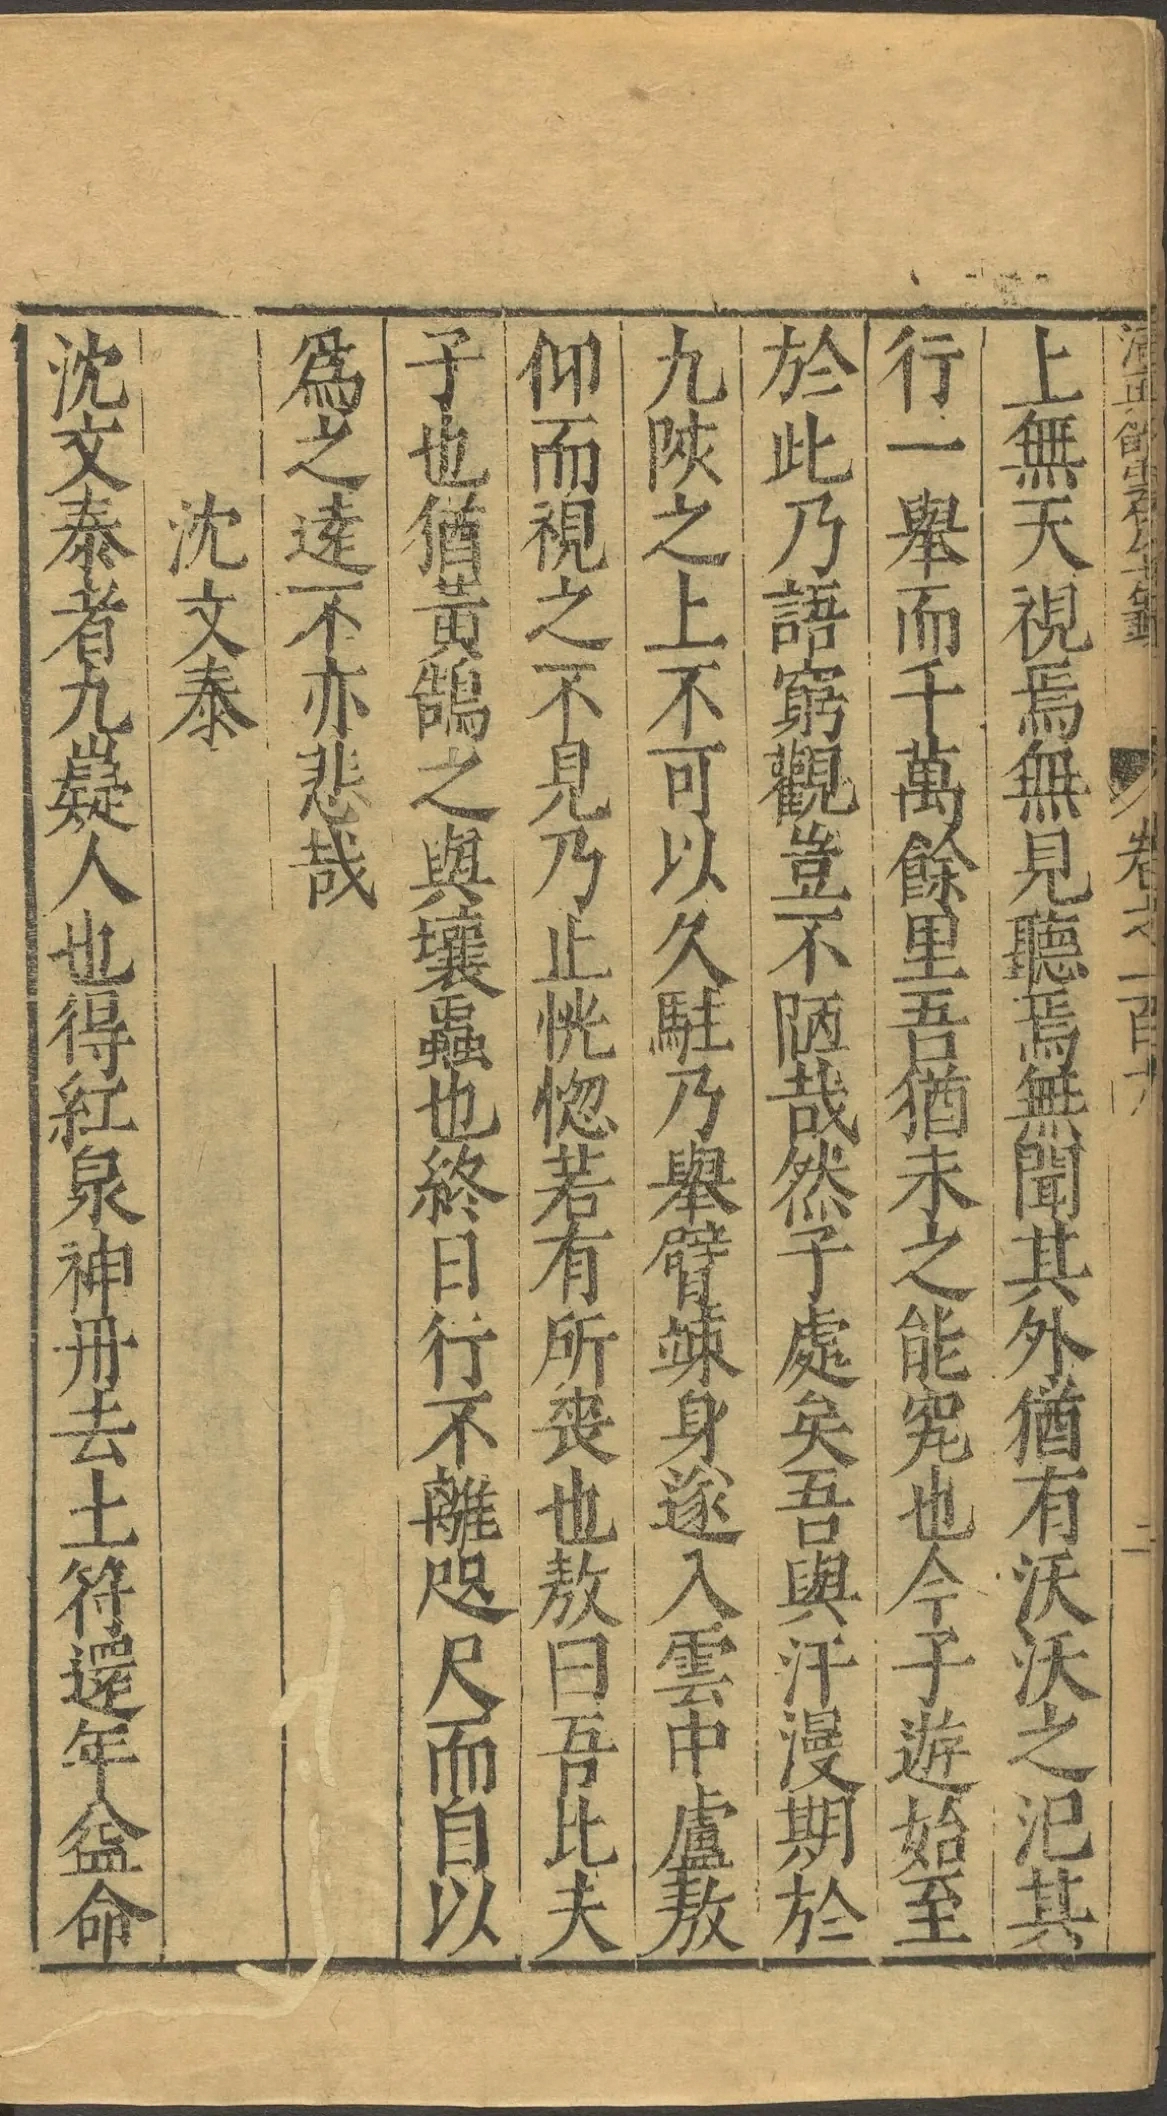 卷之一百九
二
上無天視焉無見聽焉無聞其外猶有沃沃之汜其
行一舉而千萬餘里吾猶未之能究也今子遊始至
於此乃語窮觀豈不陋哉然子處矣吾與汗漫期於
九陔之上不可以久駐乃舉臂竦身遂入雲中盧敖
仰而視之不見乃止恍惚若有所喪也敖曰吾比夫
子也猶黃鵠之與壤蟲也終日行不離咫尺而自以
為之逺不亦悲哉
沈文泰
沈文泰者九嶷人也得紅泉神丹去土符還年益命